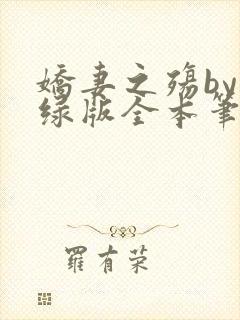 娇妻之殇by
绿版全本笔
羅有荣